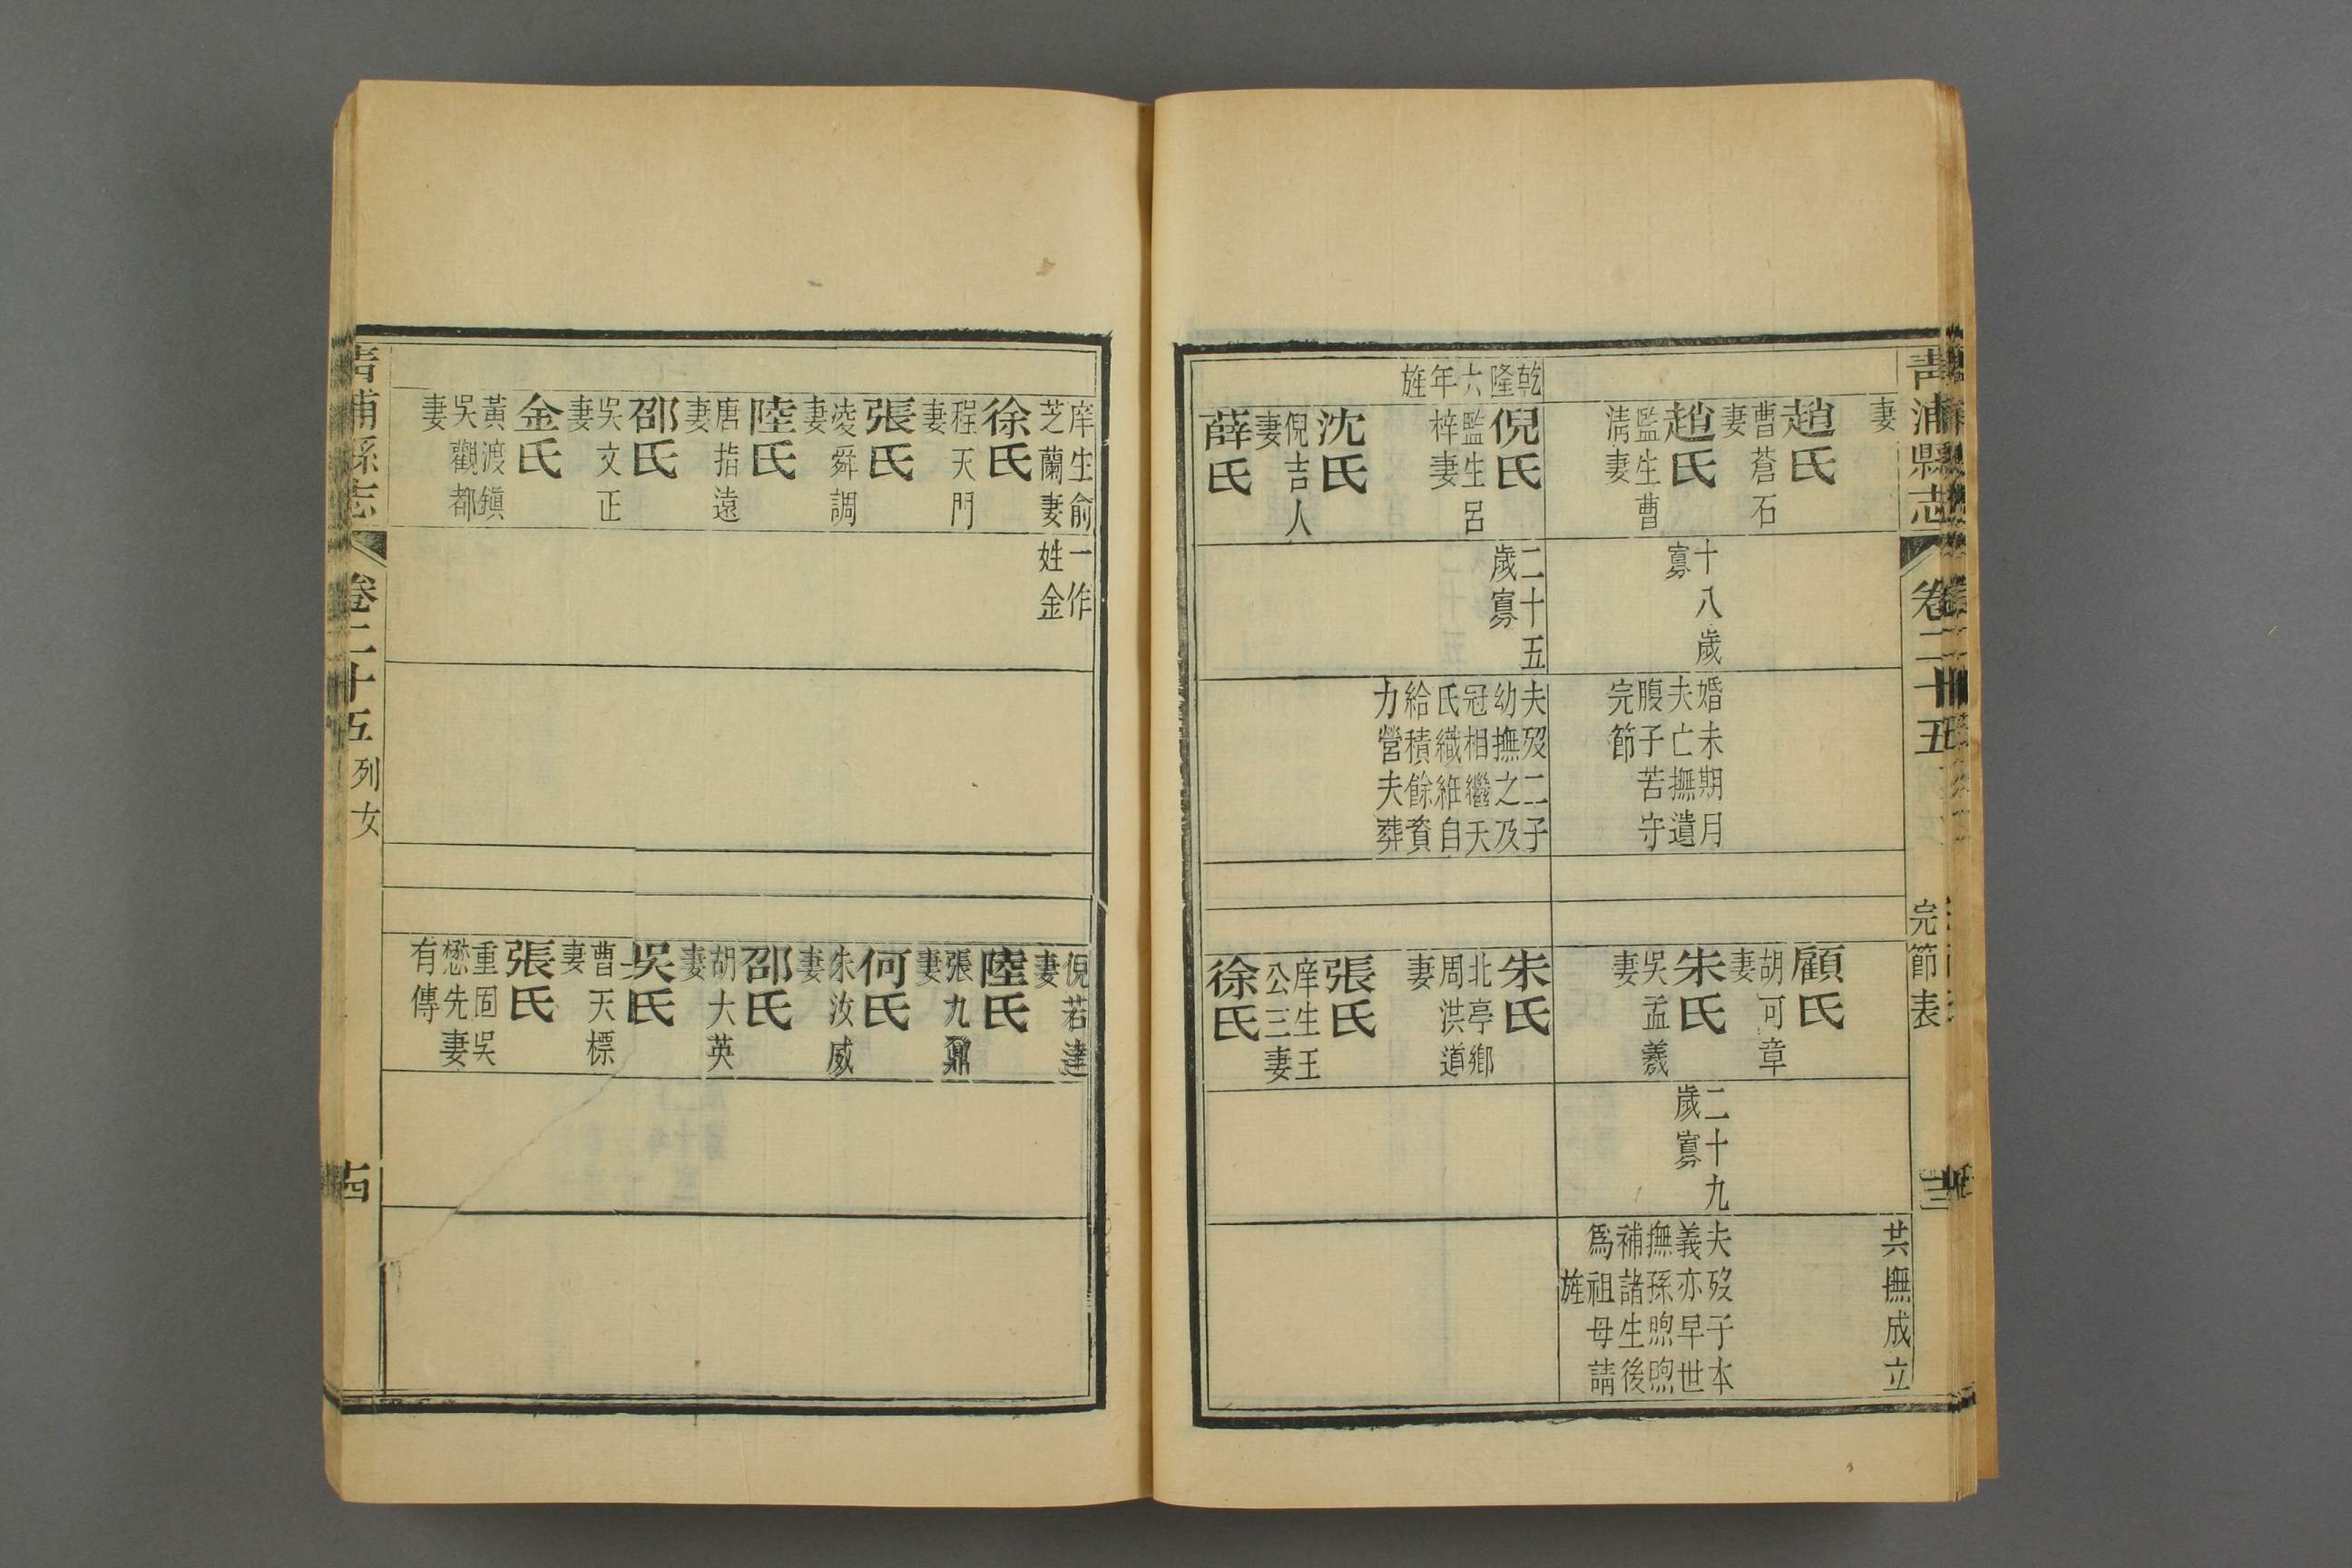 青浦縣志
卷二十五
完節表
妻
趙氏
曹蒼石
妻
趙氏
監生曹
淸妻
十八歲
寡
婚未期月
夫亡撫遺
腹子苦守
完節
乾隆六年旌
倪氏
監生呂
梓妻
二十五
歲寡
夫歿二子
幼撫之及
冠相繼夭
氏織維自
給積餘貲
力營夫葬
沈氏
倪吉人
妻
薛氏
共撫成立
顧氏
胡可章
妻
朱氏
吳孟羲
妻
二十九
歲寡
夫歿于本
義亦早世
撫孫煦煦
補諸生後
爲祖母請
旌
朱氏
北亭鄉
周洪道
妻
張氏
庠生王
公三妻
徐氏
庠生俞
芝蘭妻
一作
姓金
徐氏
程天門
妻
張氏
凌舜調
妻
陸氏
唐指遠
妻
邵氏
吳文正
妻
金氏
黃渡鎭
吳觀都
妻
倪若達
妻
陸氏
張九鼎
妻
何氏
朱汝威
妻
邵氏
胡大英
妻
吳氏
曹天標
妻
張氏
重固吳
懋先妻
有傳
青浦縣志
卷二十五
列女